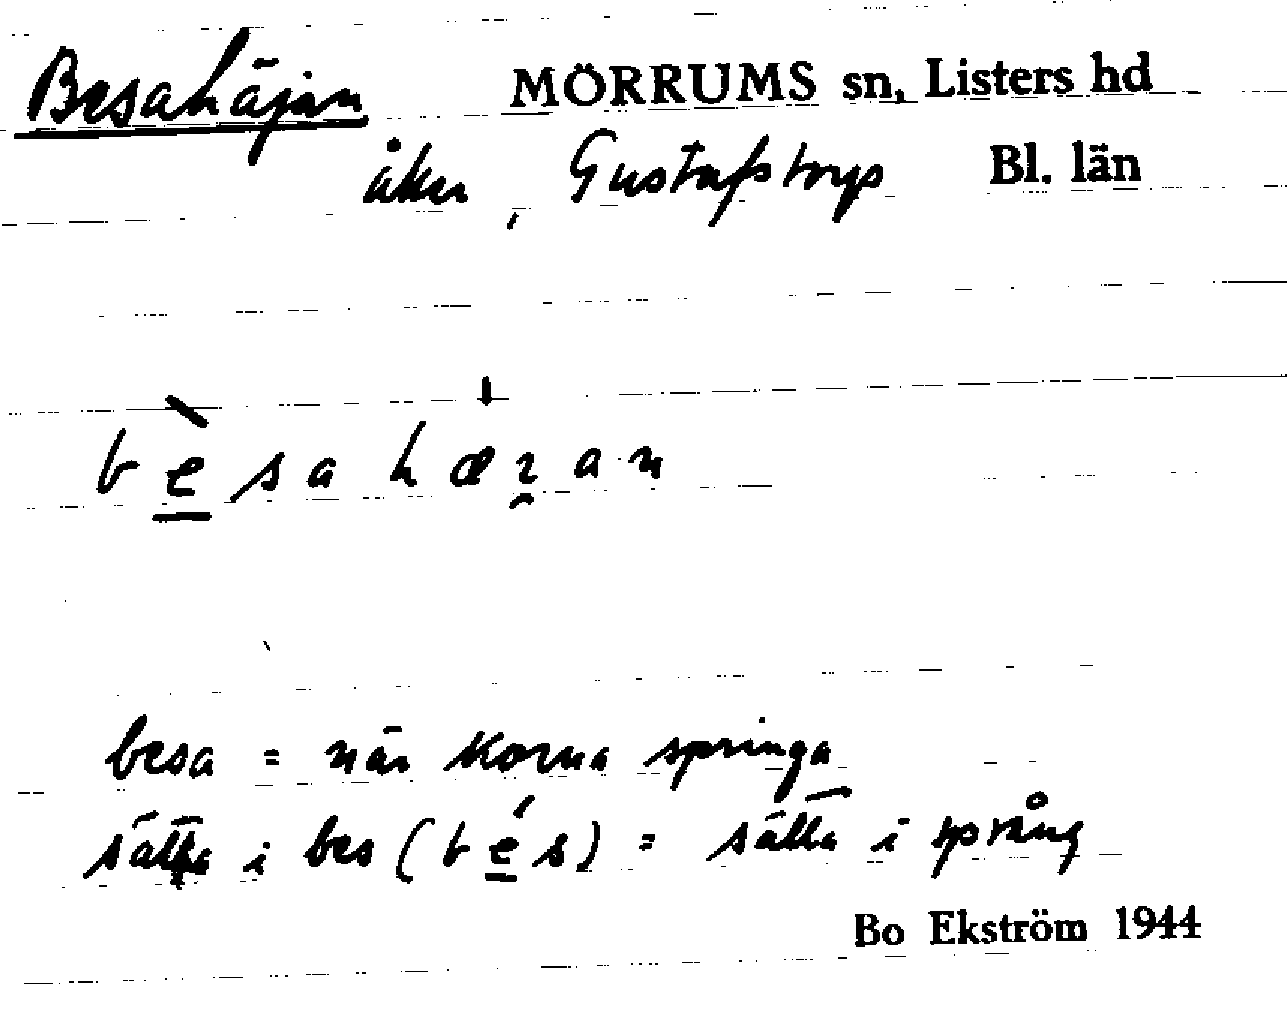 Besahäjan MÖRRUMS sn, Listers hd
åker, Gustafstorp Bl. län
bèsahæɿ̯an
besa = när korna springa
sätta i bes (bés) = sätta i språng
Bo Ekström 1944